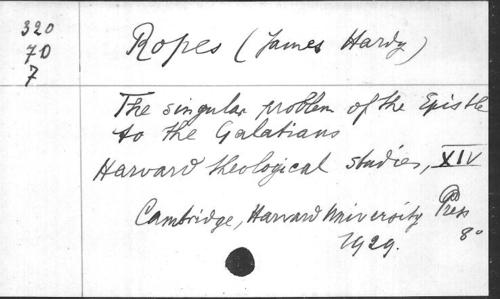 320
70
7
Ropes (James Hardy)
The singular problem of the Epistle
to the Galatians
Harvard theological studies, XIV
Cambridge, Harvard University Press
1929. 8°